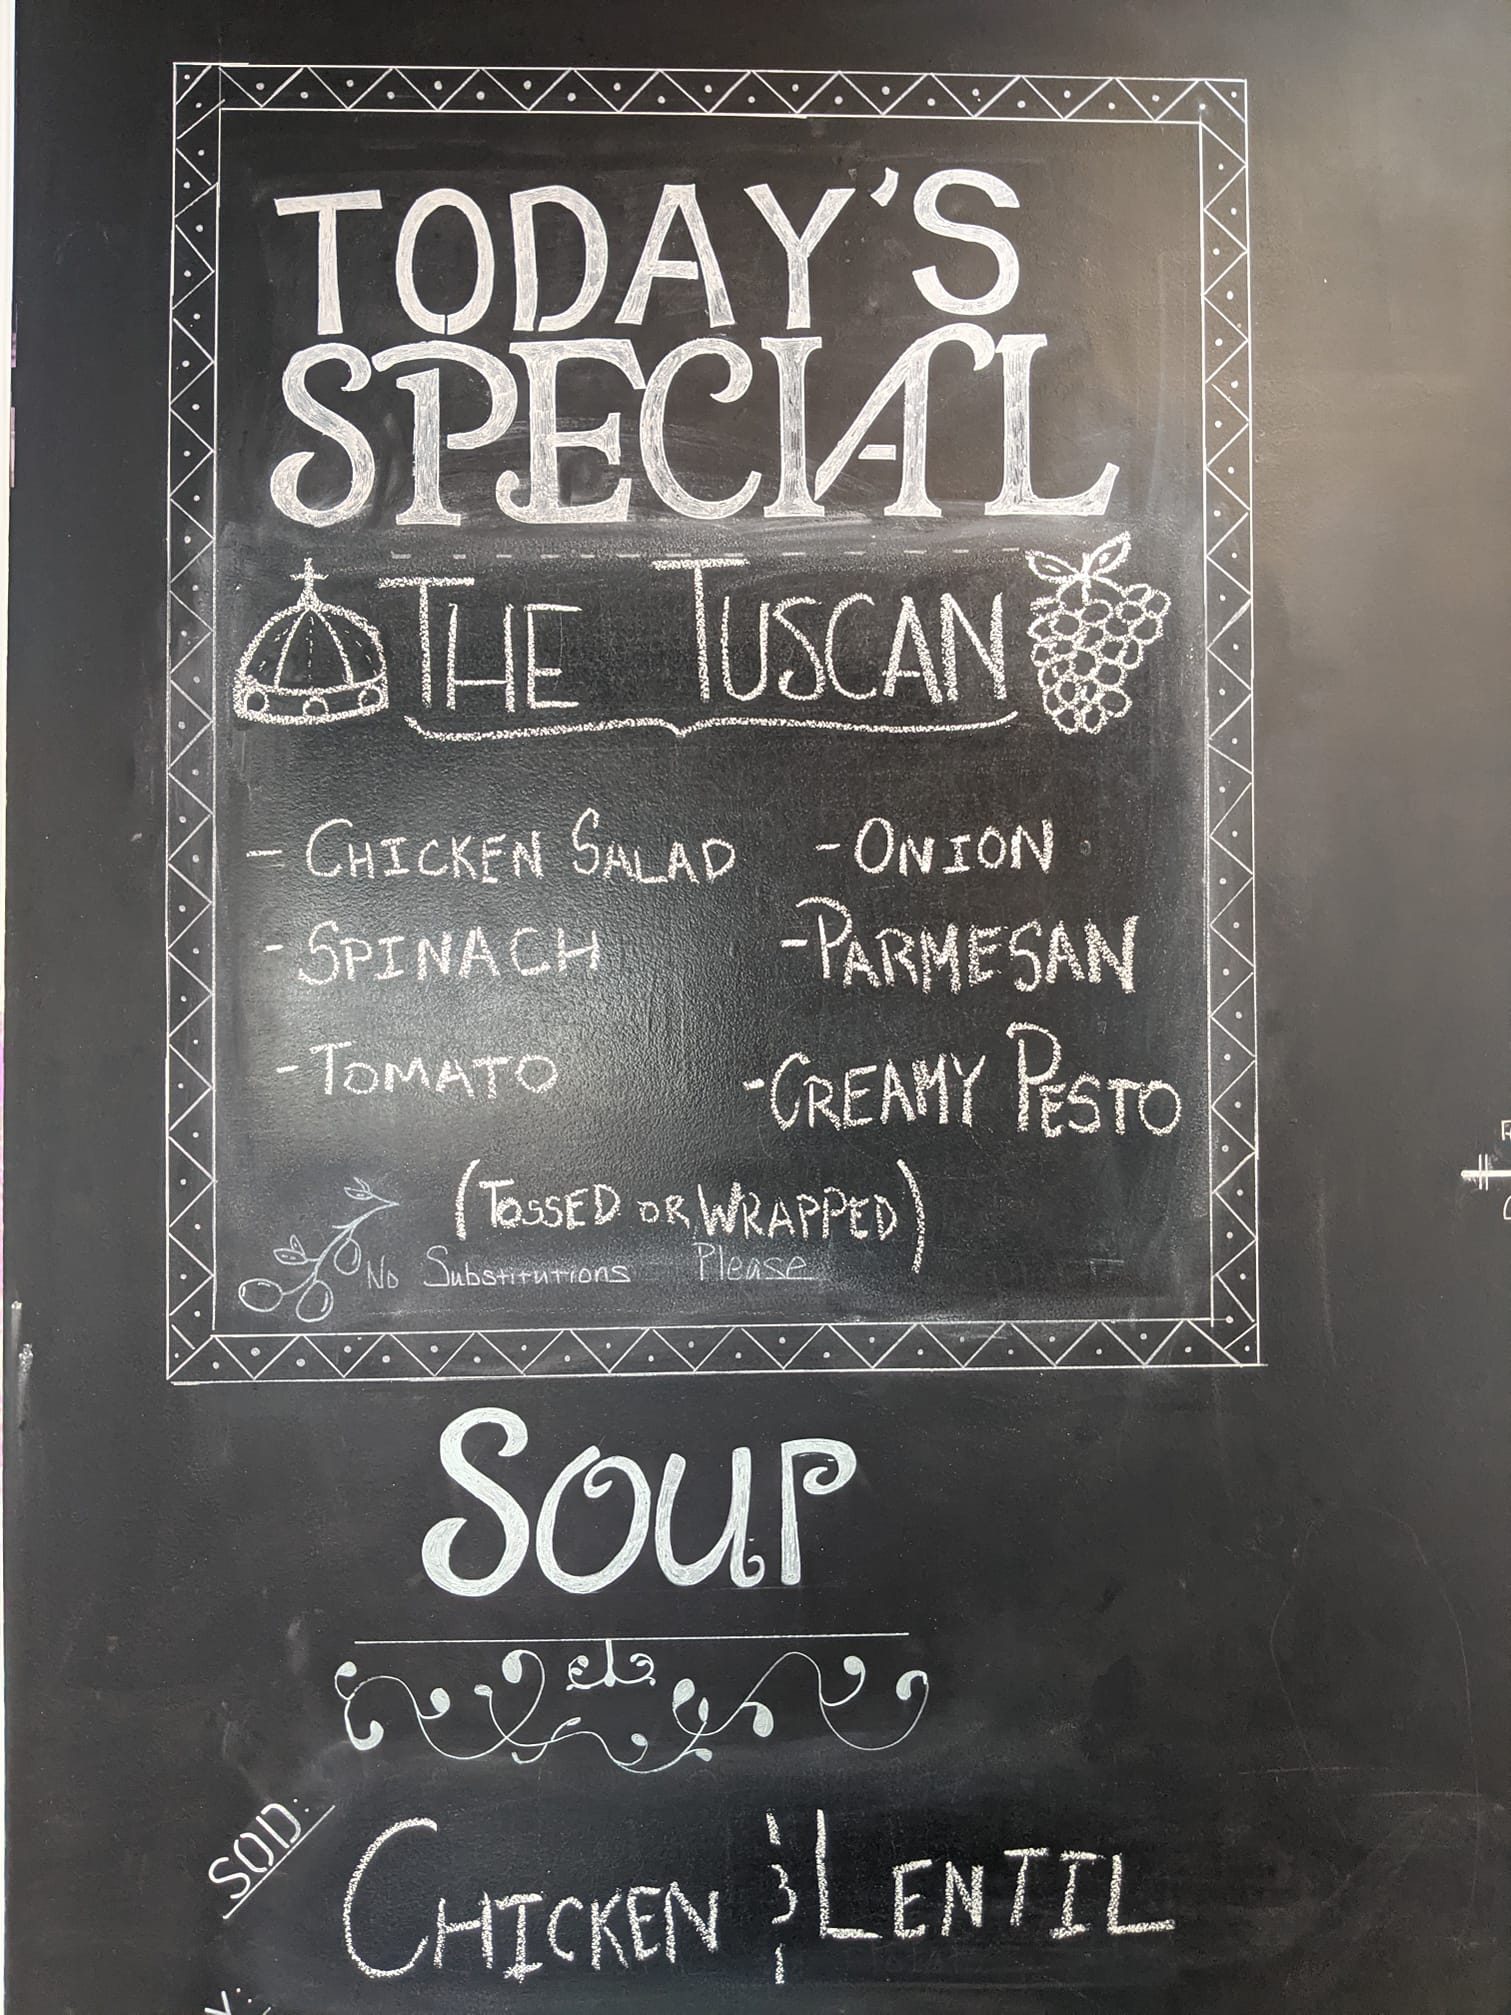 TODAY'S
SPECIAL
THE TUSCAN
- CHICKEN SALAD
- SPINACH
- TOMATO
- ONION
- PARMESAN
- CREAMY PESTO
(TOSSED OR WRAPPED)
No Substitutions Please
SOUP
SOD:
CHICKEN & LENTIL